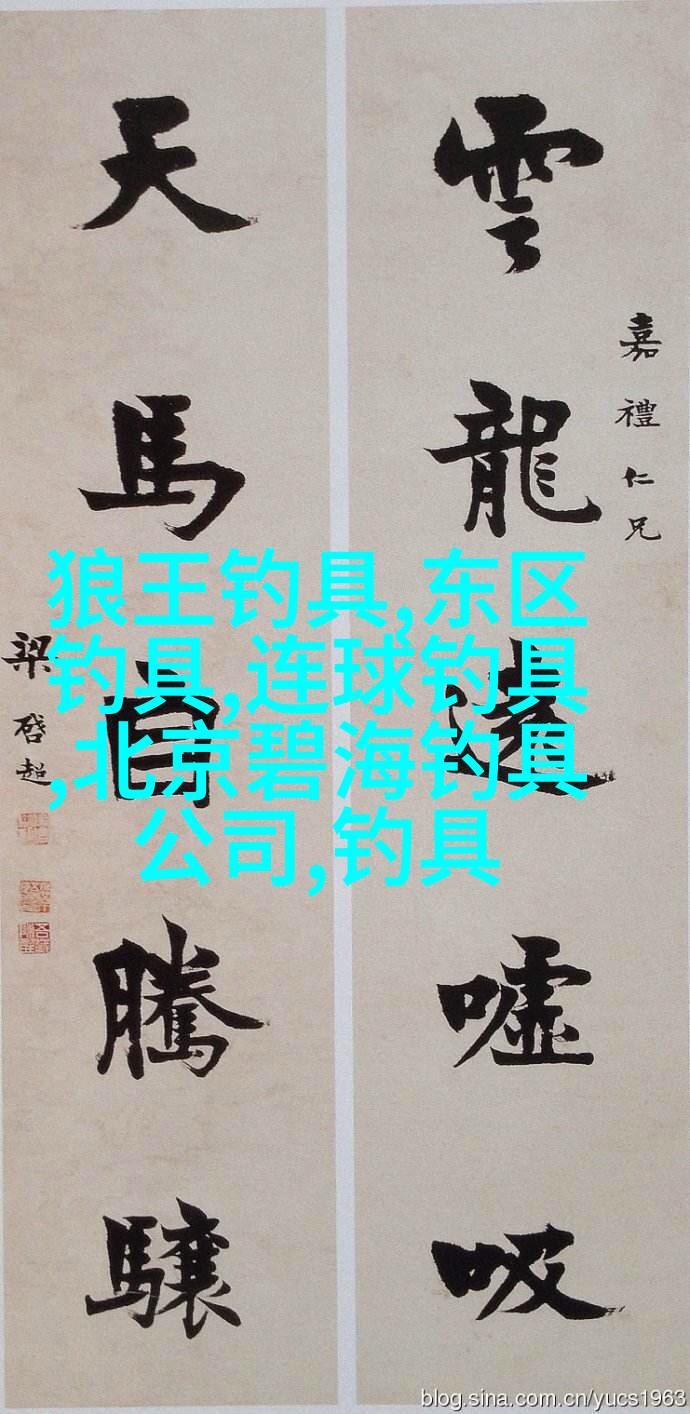 嘉禮仁兄
雲龍噓吸
天馬自騰驤
梁啓超
狼王钓具,东区
钓具,连球钓具
,北京碧海钓具
公司,钓具
blog.sina.com.cn/yucs1963